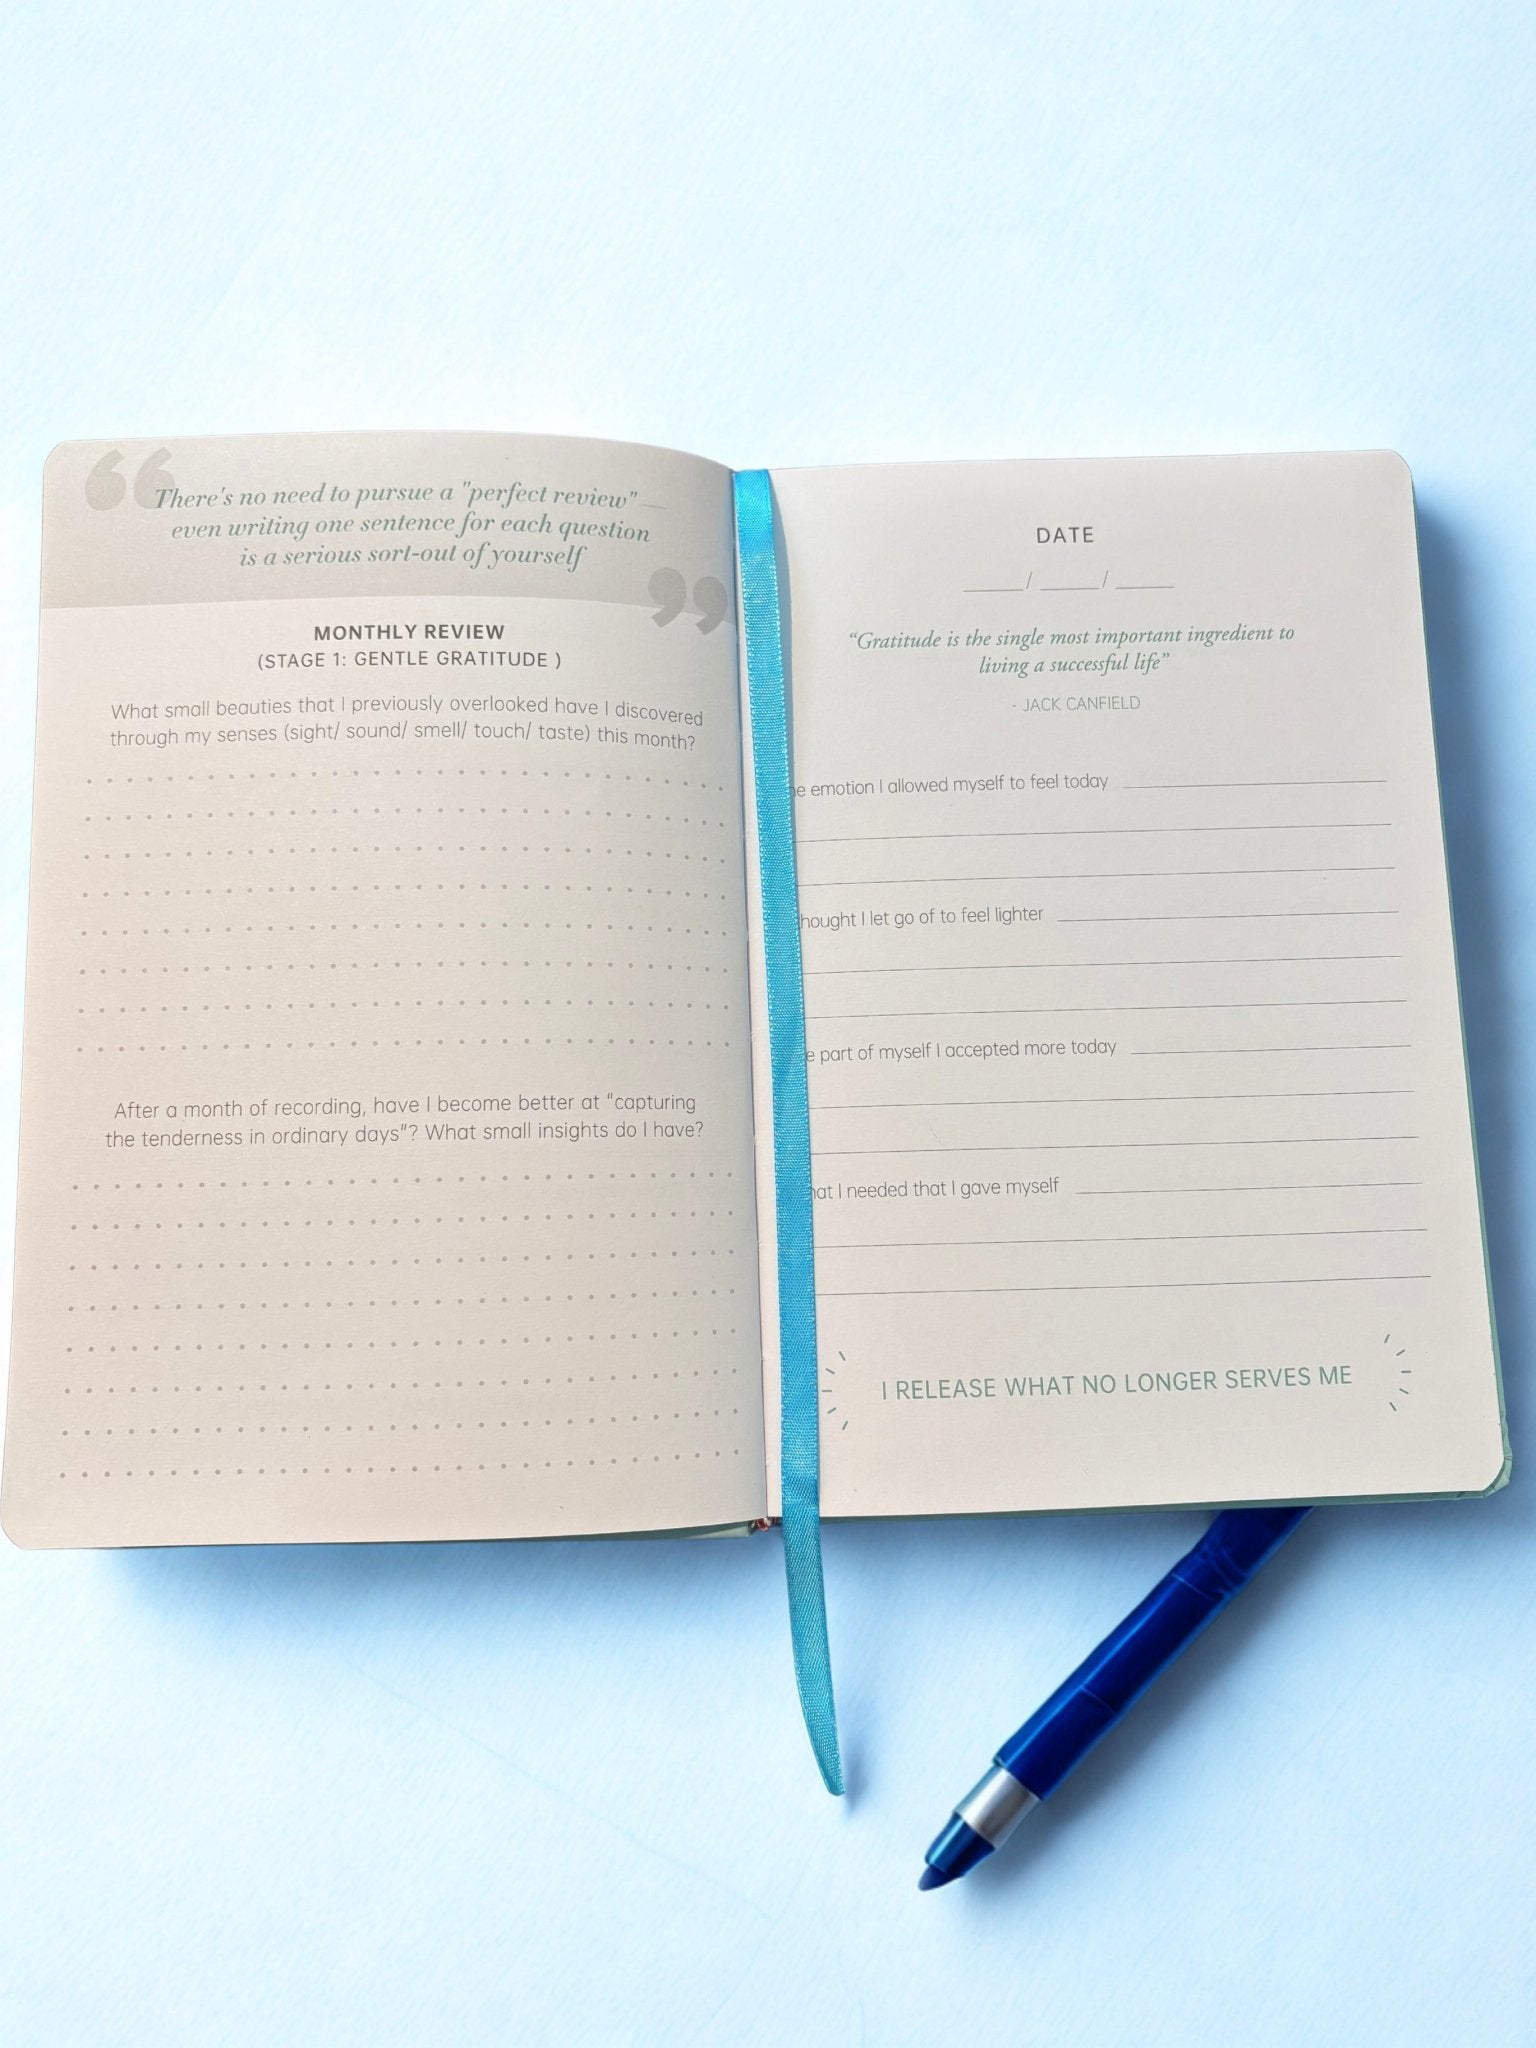 There's no need to pursue a "perfect review" —
even writing one sentence for each question
is a serious sort-out of yourself
MONTHLY REVIEW
(STAGE 1: GENTLE GRATITUDE )
What small beauties that I previously overlooked have I discovered
through my senses (sight/ sound/ smell/ touch/ taste) this month?
After a month of recording, have I become better at "capturing
the tenderness in ordinary days"? What small insights do I have?
DATE
/ /
“Gratitude is the single most important ingredient to
living a successful life”
- JACK CANFIELD
emotion I allowed myself to feel today
I let go of to feel lighter
part of myself I accepted more today
I needed that I gave myself
I RELEASE WHAT NO LONGER SERVES ME